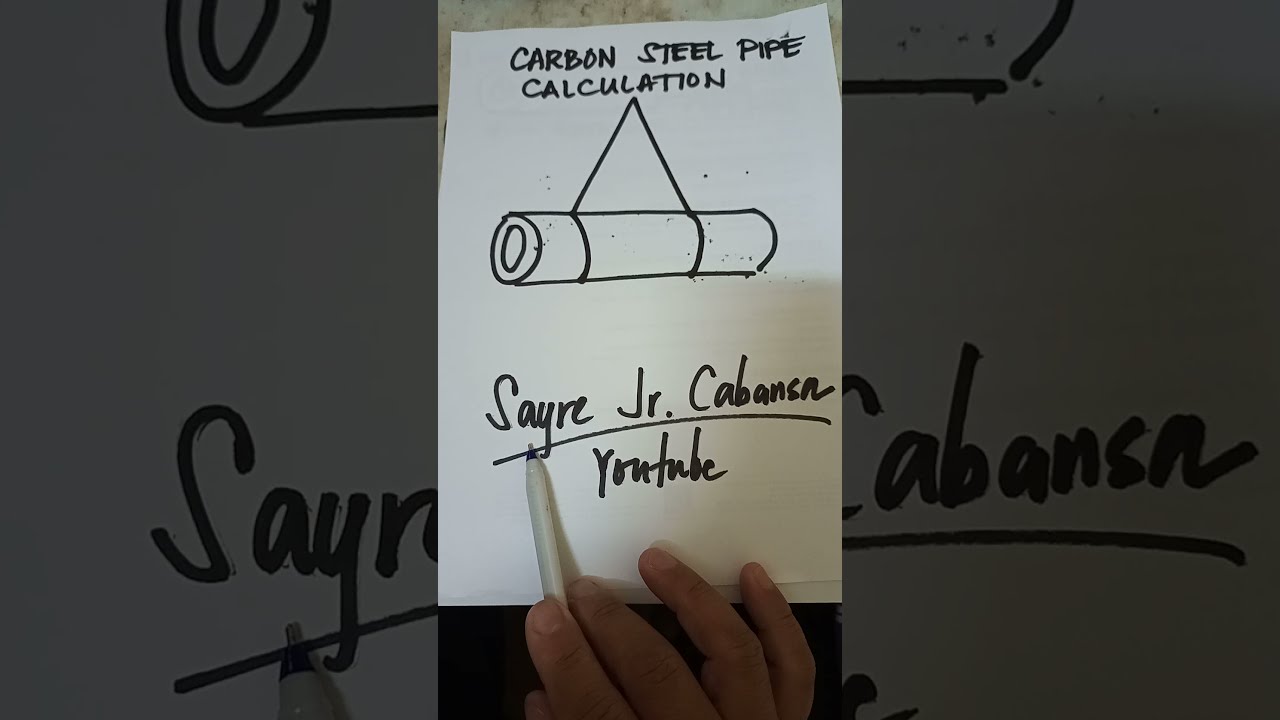 CARBON STEEL PIPE
CALCULATION
Sayre Jr. Cabansa
Youtube